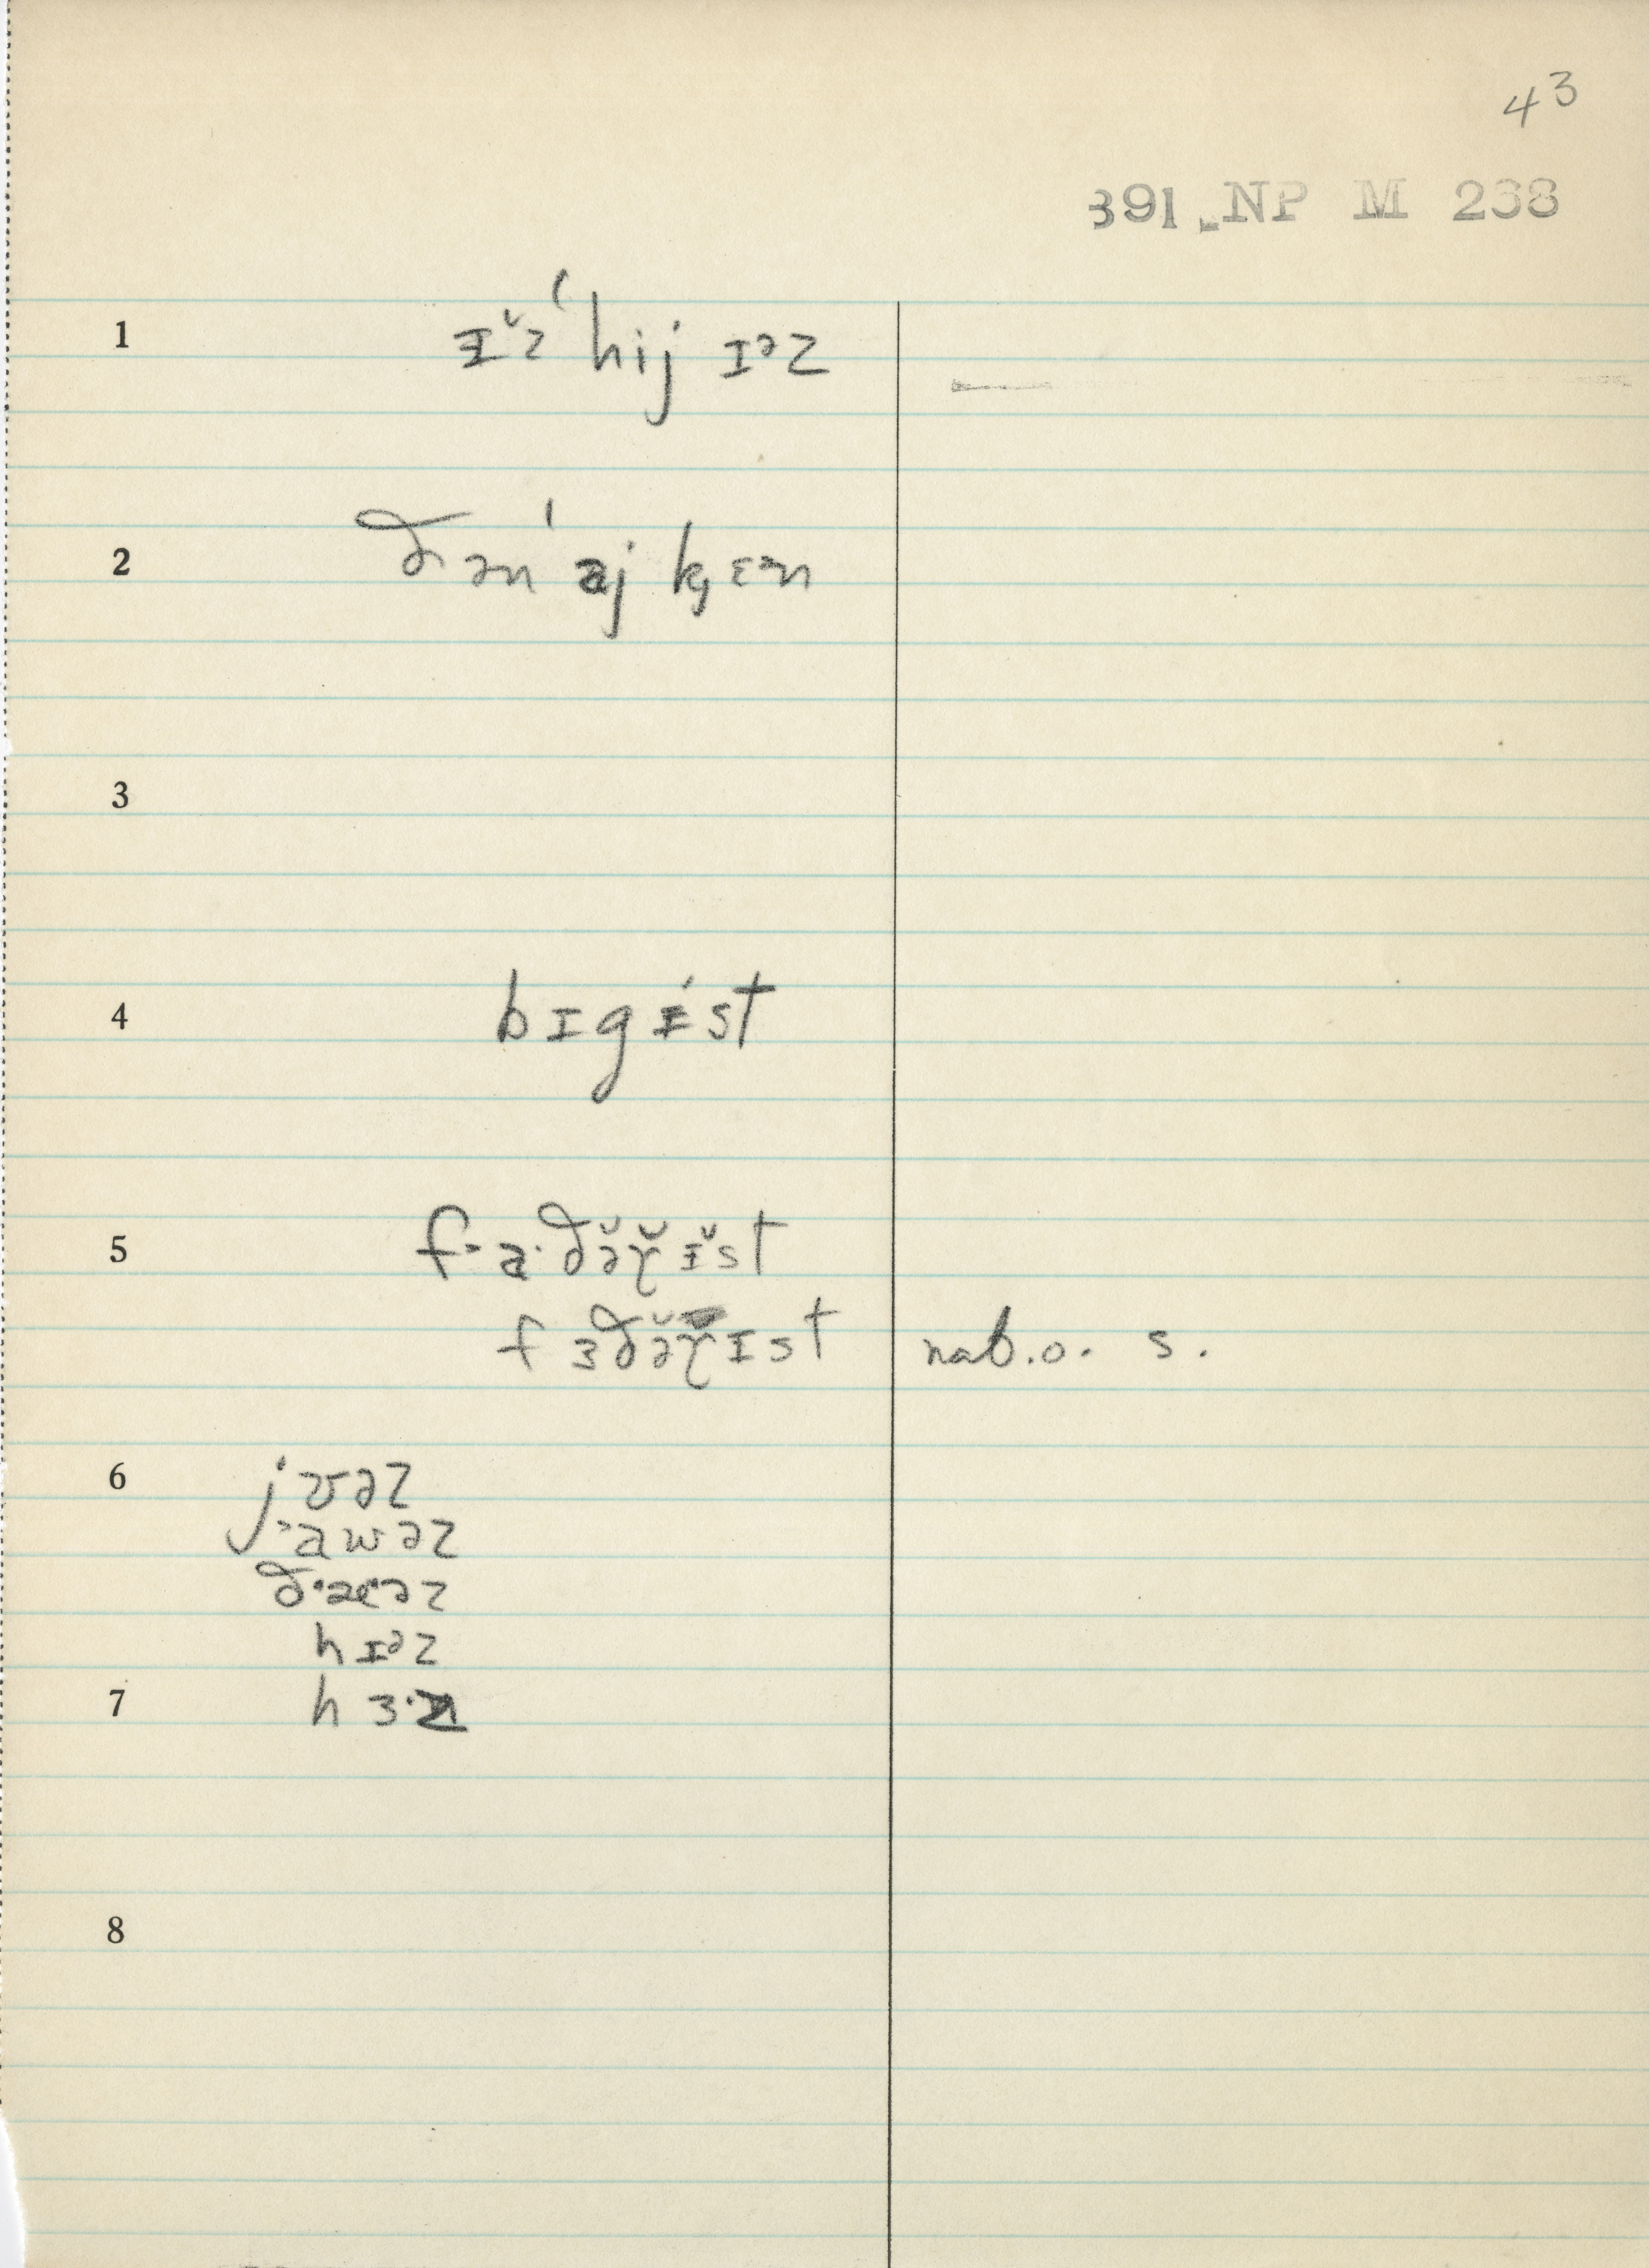 43
391. NP M 238
1 ɪ̆z ˈhij ɪᵊz
2 ðən ˈaj kȩɛᵊn
3
4 bɪgɪ́st
5 f-a·ðə̆ɣ̆ɪ̆st
f ɜðə̆ɣɪst nab.o. s.
6 jʊəz
˃awəz
ð·æ·əz
hɪᵊz
7 hɜ·z
8